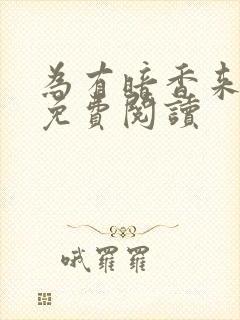 為有暗香來
免費閱讀
哦羅羅